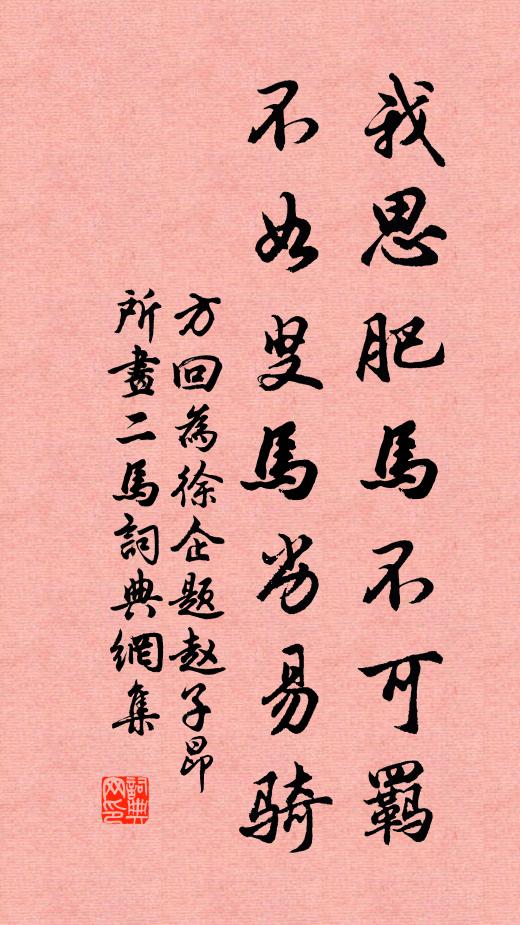 我思肥馬不可羈
不如叟馬劣易騎
方回為徐企題赵子昂
所畫二馬詞典網集
詞典网印